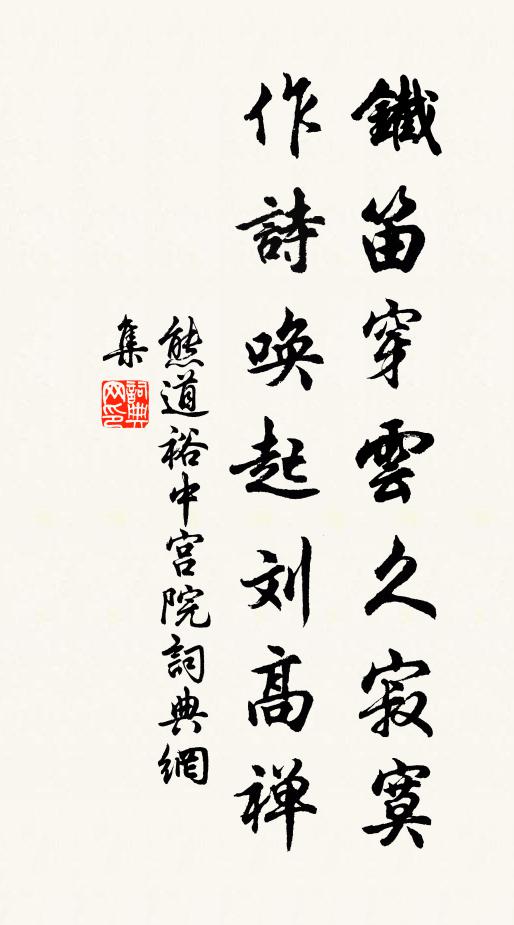 鐵笛穿雲久寂寞
作詩唤起刘高禅
熊道裕中宫院詞典網
集
詞典
网印